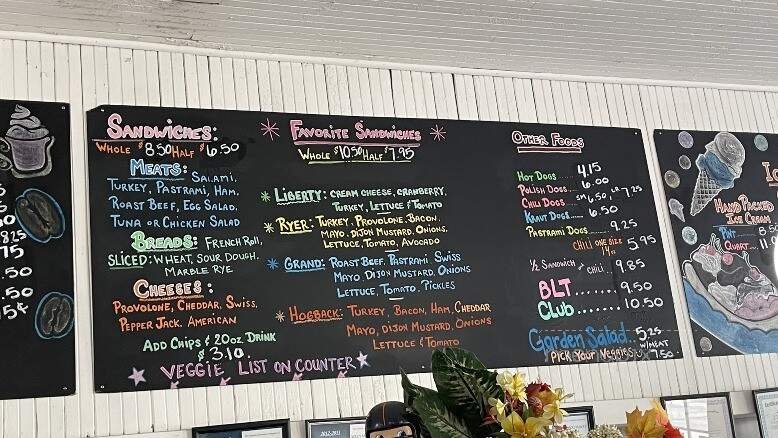 SANDWICHES:
WHOLE $8.50 HALF $6.50
MEATS: SALAMI,
TURKEY, PASTRAMI, HAM,
ROAST BEEF, EGG SALAD,
TUNA OR CHICKEN SALAD
BREADS: FRENCH ROLL,
SLICED: WHEAT, SOUR DOUGH,
MARBLE RYE
CHEESES:
PROVOLONE, CHEDDAR, SWISS,
PEPPER JACK, AMERICAN
ADD CHIPS & 20oz DRINK
$3.10
VEGGIE LIST ON COUNTER
FAVORITE SANDWICHES
WHOLE $10.50 HALF $7.95
* LIBERTY: CREAM CHEESE, CRANBERRY,
TURKEY, LETTUCE & TOMATO
* RYER: TURKEY, PROVOLONE, BACON,
MAYO, DIJON MUSTARD, ONIONS,
LETTUCE, TOMATO, AVOCADO
* GRAND: ROAST BEEF, PASTRAMI, SWISS
MAYO, DIJON MUSTARD, ONIONS
LETTUCE, TOMATO, PICKLES
* HOGBACK: TURKEY, BACON, HAM, CHEDDAR
MAYO, DIJON MUSTARD, ONIONS
LETTUCE & TOMATO
OTHER FOODS
HOT DOGS.... 4.15
POLISH DOGS.... 6.00
CHILI DOGS.... SM 6.50, LR 7.25
KRAUT DOGS..... 6.50
PASTRAMI DOGS.... 9.25
CHILI ONE SIZE 14oz 5.95
1/2 SANDWICH & CHILI 9.85
BLT....... 9.50
CLUB....... 10.50
Garden Salad.. 5.25
PICK YOUR VEGGIES W/MEAT 7.50
HAND PACKED
ICE CREAM
PINT
QUART